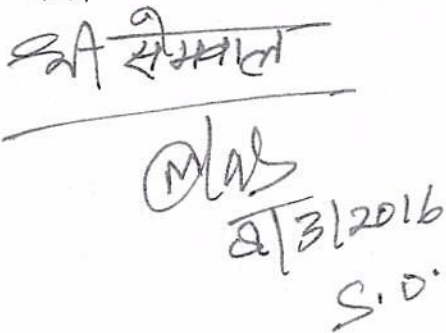 श्री सेमवाल
2/3/2016
S.O.